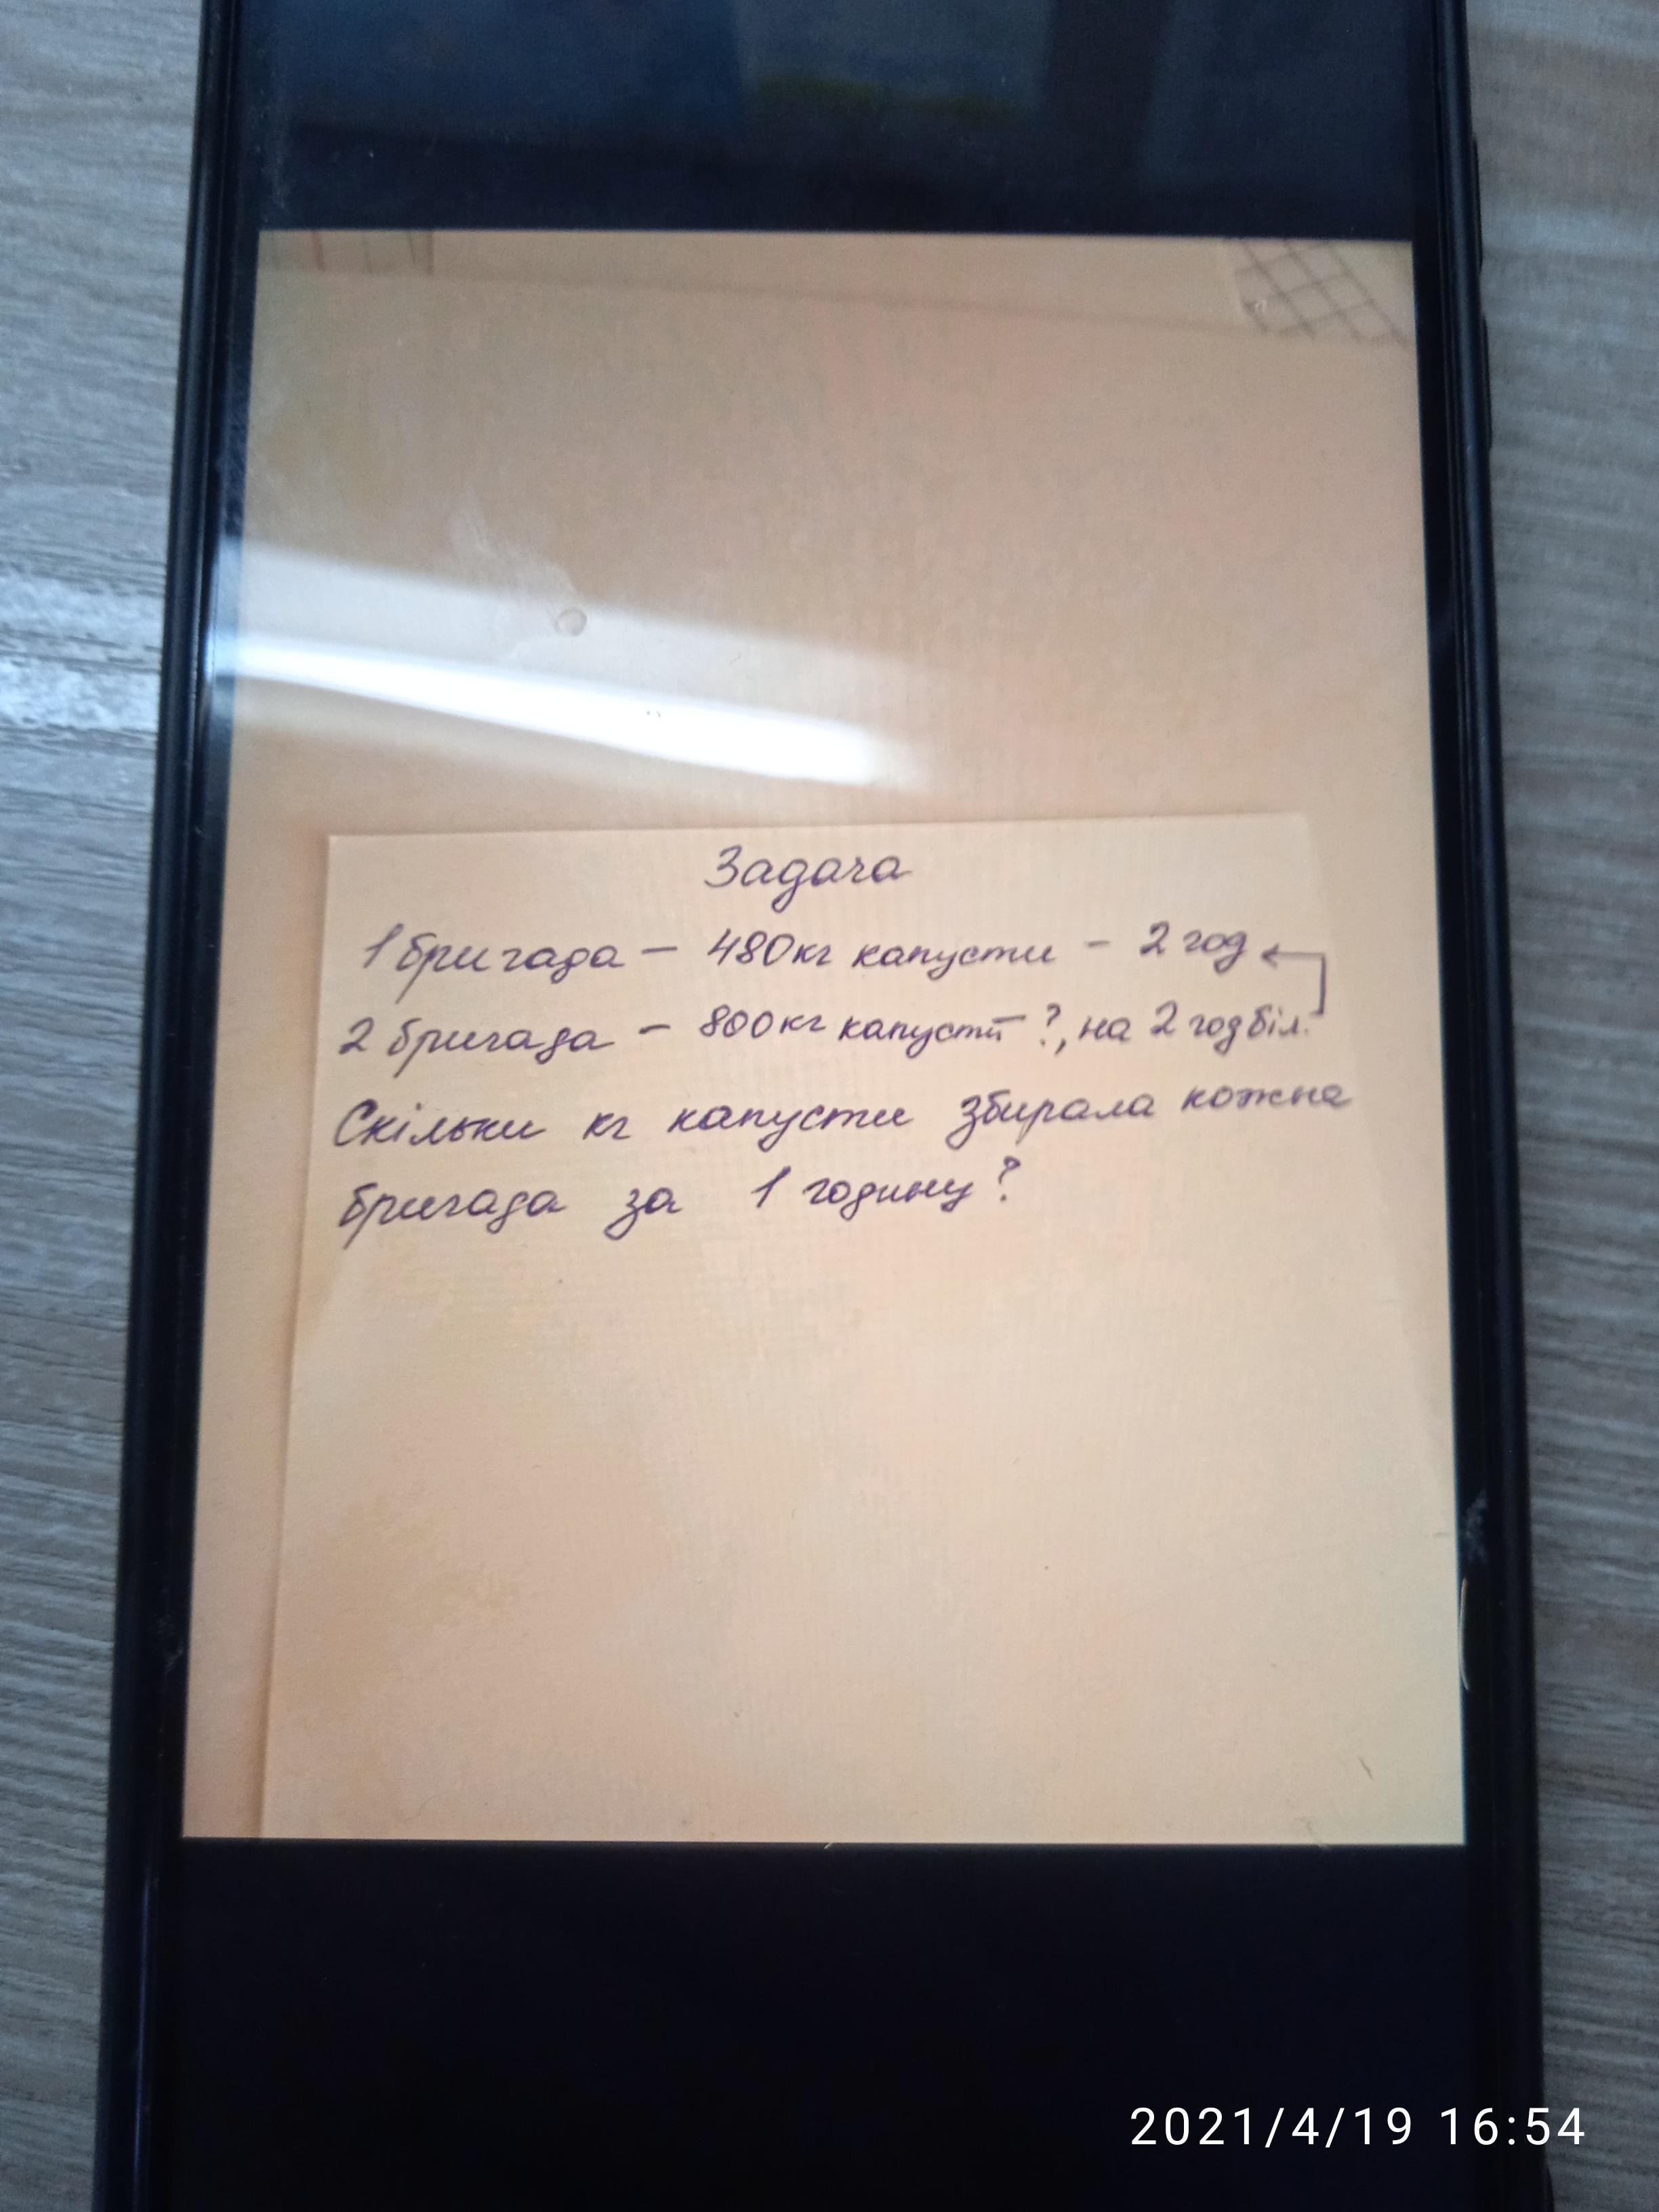 Задача
1 бригада – 480кг капусти – 2 год
2 бригада – 800кг капусти ?, на 2 год біл.
Скільки кг капусти збирала кожна
бригада за 1 годину?
2021/4/19 16:54